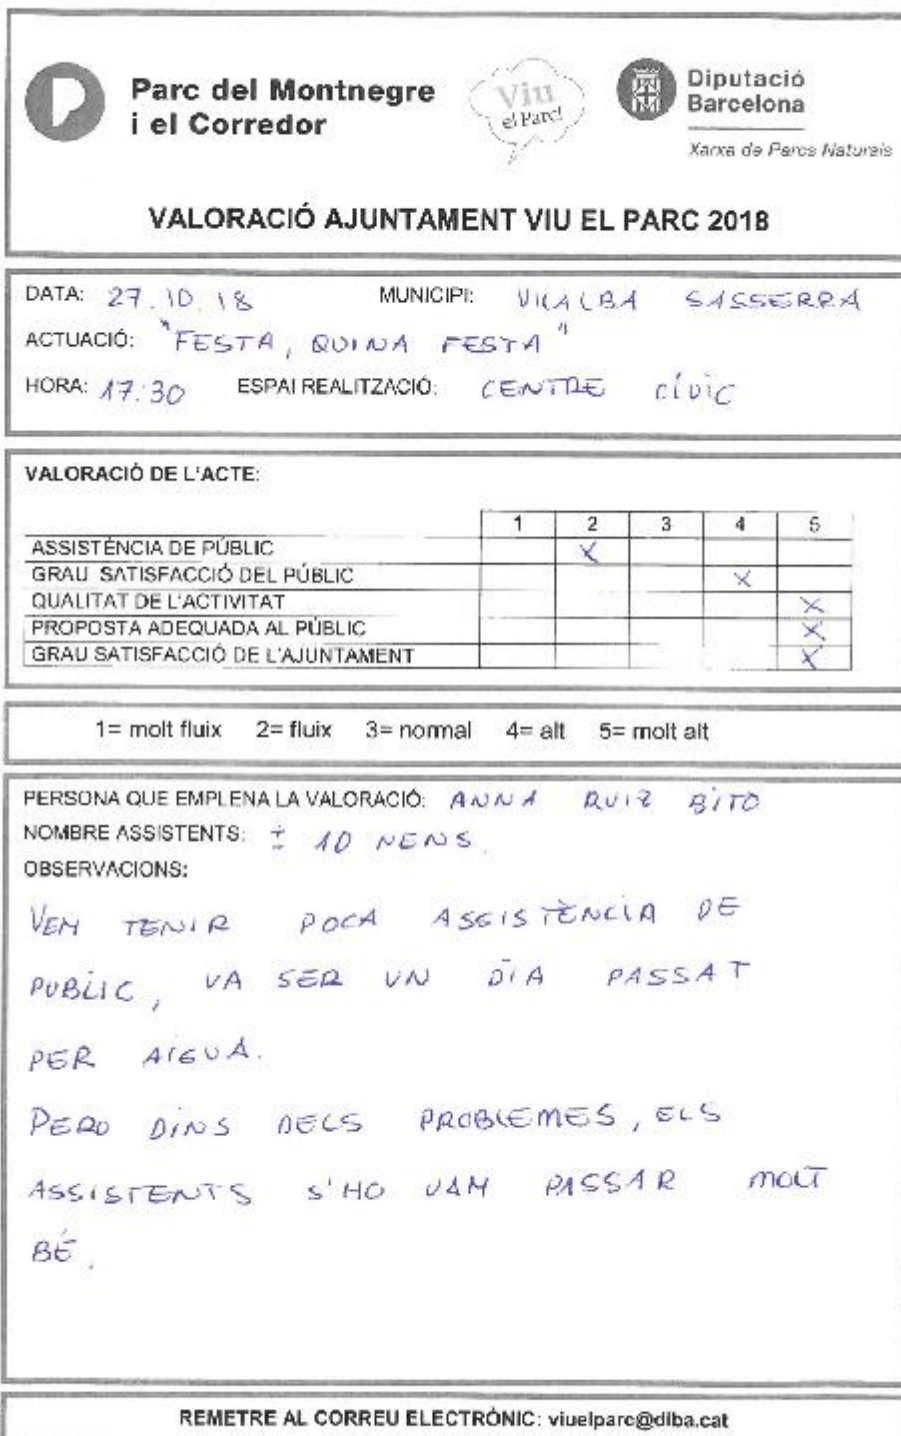 Parc del Montnegre
i el Corredor
Viu
el Parc!
Diputació
Barcelona
Xarxa de Parcs Naturals
VALORACIÓ AJUNTAMENT VIU EL PARC 2018
DATA: 27.10.18 MUNICIPI: VILALBA SASSERRA
ACTUACIÓ: "FESTA, QUINA FESTA"
HORA: 17:30 ESPAI REALITZACIÓ: CENTRE CÍVIC
VALORACIÓ DE L'ACTE:
1 2 3 4 5
ASSISTÈNCIA DE PÚBLIC X
GRAU SATISFACCIÓ DEL PÚBLIC X
QUALITAT DE L'ACTIVITAT X
PROPOSTA ADEQUADA AL PÚBLIC X
GRAU SATISFACCIÓ DE L'AJUNTAMENT X
1= molt fluix 2= fluix 3= normal 4= alt 5= molt alt
PERSONA QUE EMPLENA LA VALORACIÓ: ANNA RUIZ BITO
NOMBRE ASSISTENTS: ± 10 NENS.
OBSERVACIONS:
VEM TENIR POCA ASSISTÈNCIA DE
PUBLIC, VA SER UN DIA PASSAT
PER AIGUA.
PERO DINS DELS PROBLEMES, ELS
ASSISTENTS S'HO VAM PASSAR MOLT
BÉ.
REMETRE AL CORREU ELECTRÒNIC: viuelparc@diba.cat